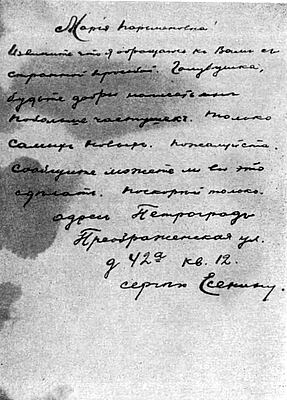 Марія Парменовна!
Извините что я обращаюсь к Вам с
странной просьбой. Голубушка,
будьте добры написать мне
побольше частушек. Только
самых новых. Пожалуйста.
Сообщите можете ли вы это
сделать. Поскорей только.
адрес Петроград
Преображенская ул.
д 42а кв. 12.
Сергею Есенину.